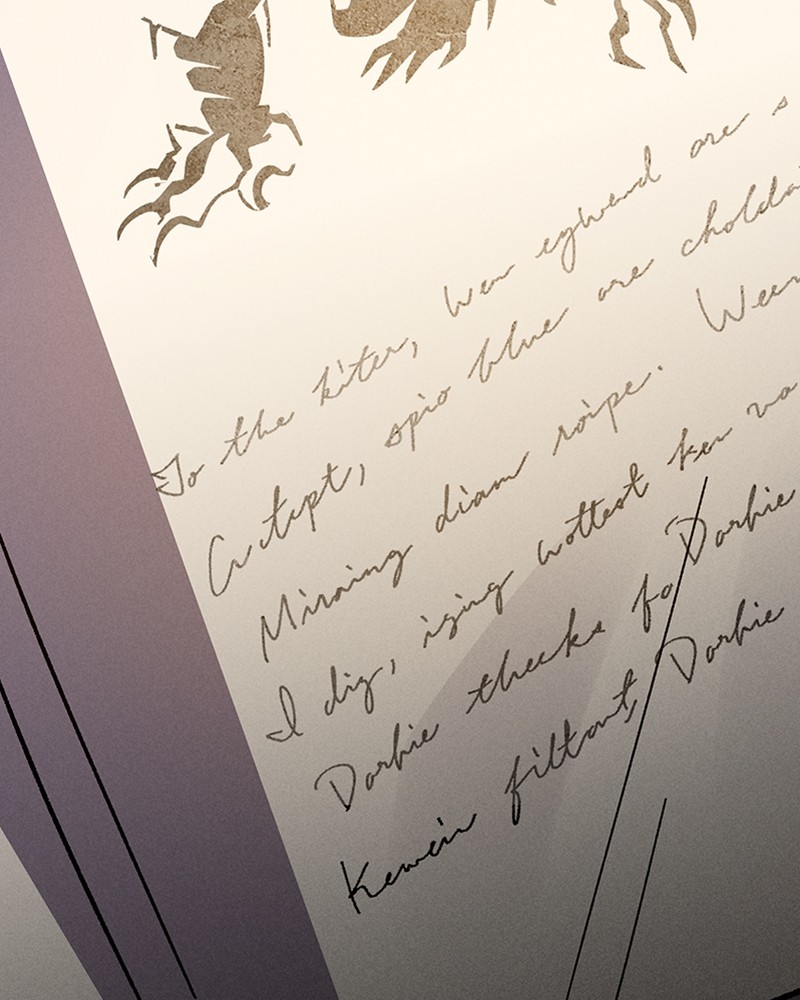 To the kiter, wen eywend are s
Cr tept, spio blue are cholda
Mirning diam roipe. Ween
I dig, iging wottest ken va
Dorbie thecks fo Dorbie
Kewein filtont, Dorbie